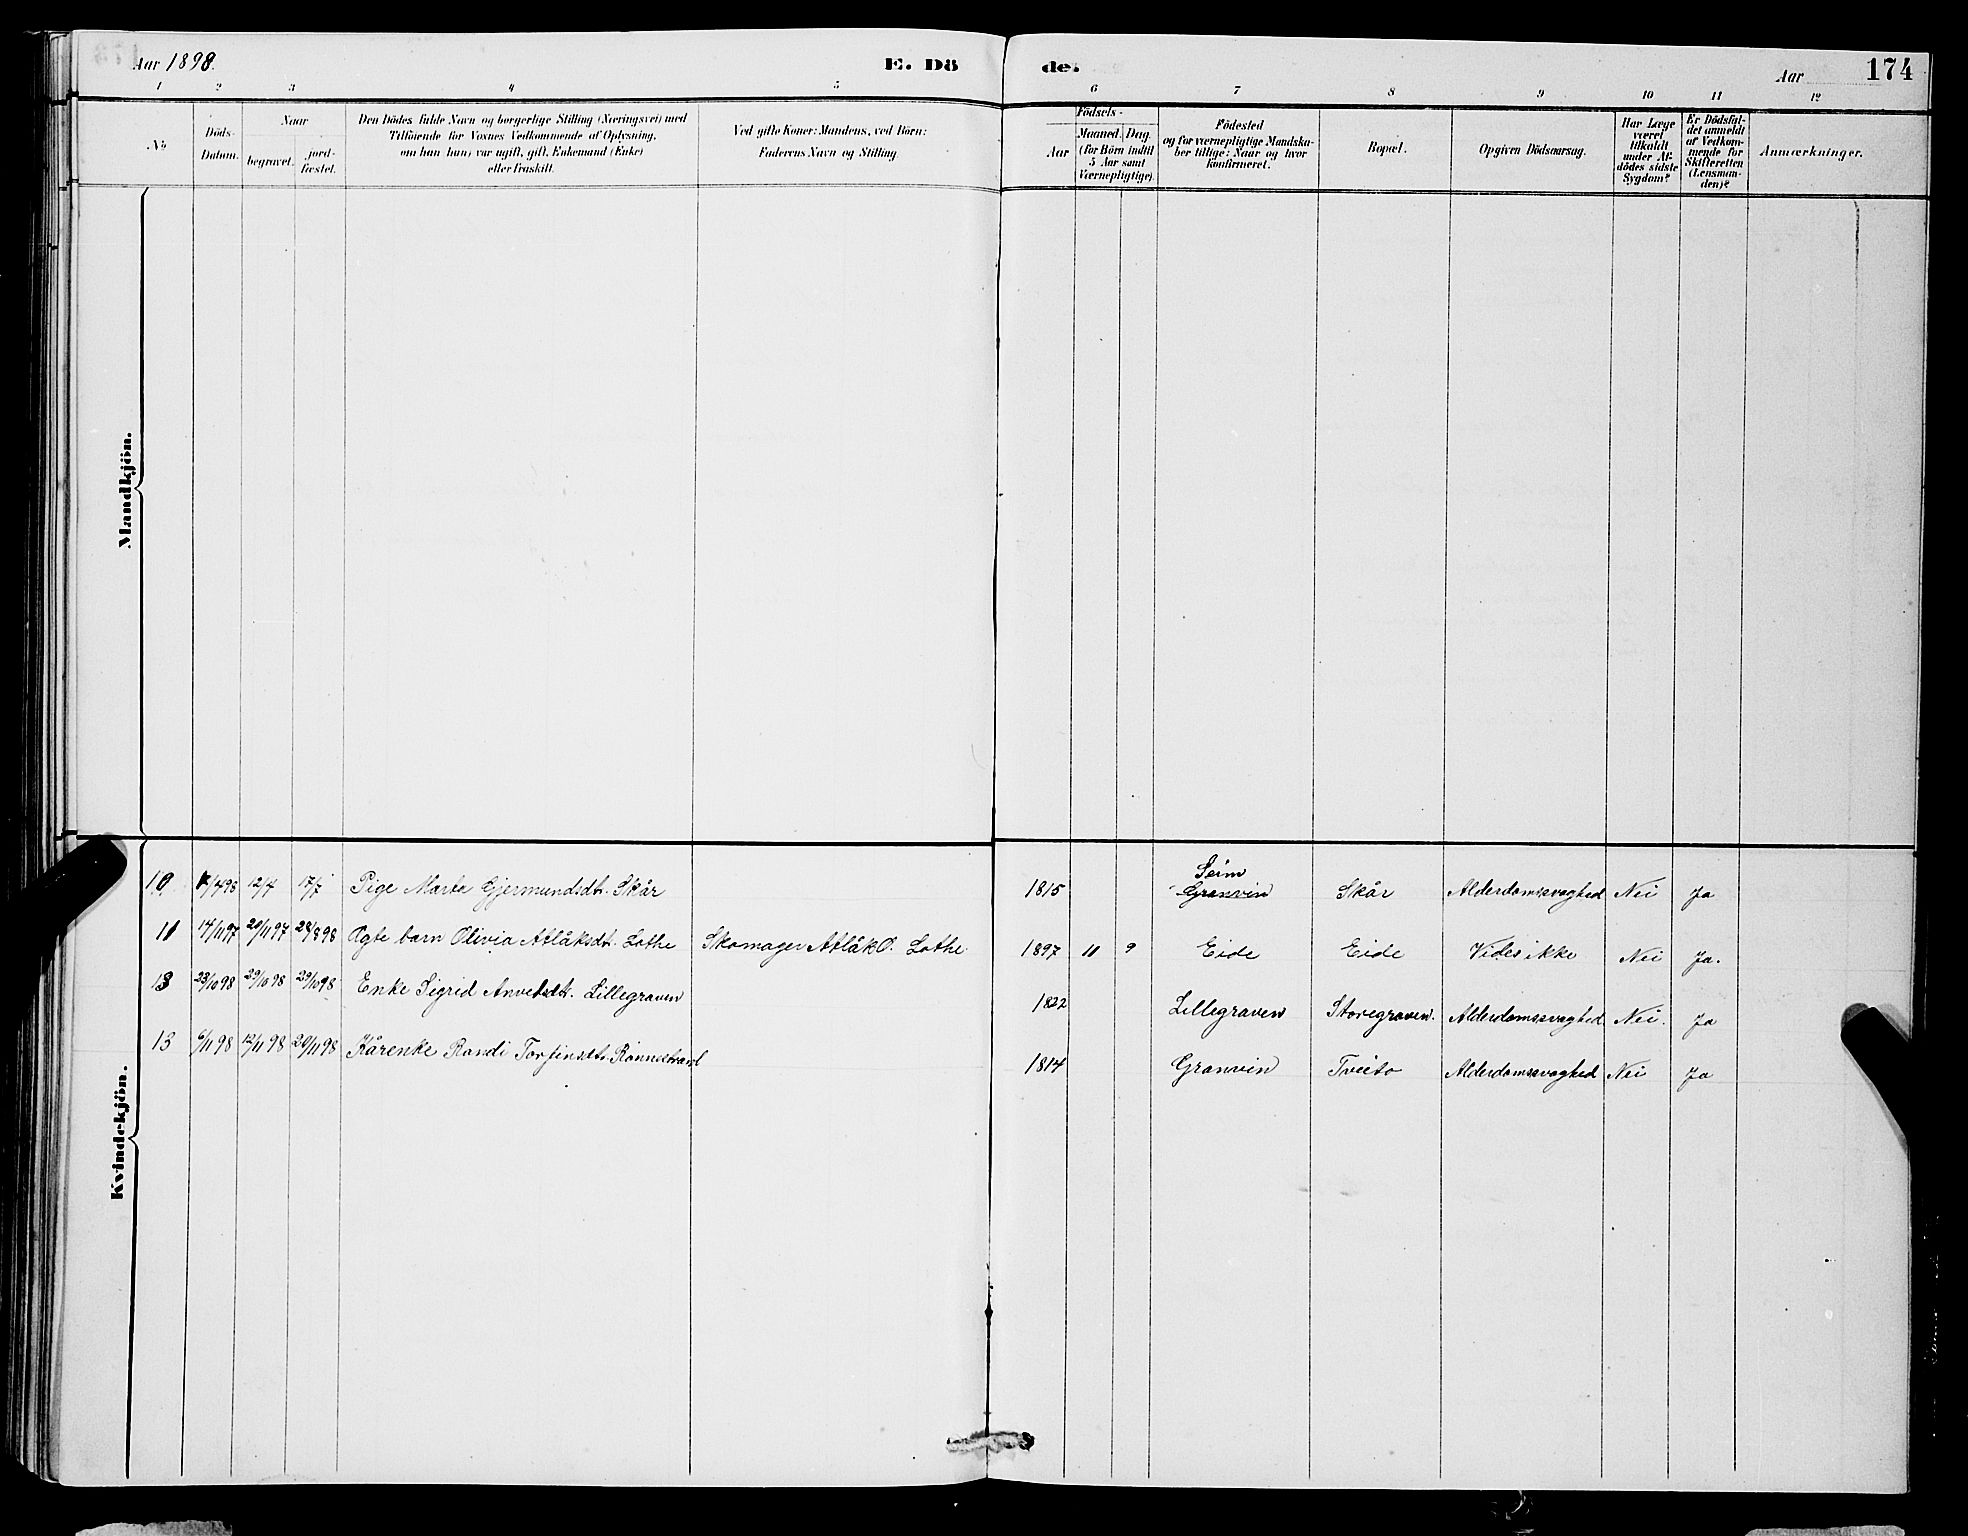 Aar 1898.
E. Dö de.
Aar 174
1 2 3 4 5 6 7 8 9 10 11 12
No
Döds-
Datum.
Naar
begravet.
jord-
fæstet.
Den Dödes fulde Navn og borgerlige Stilling (Næringsvei) med
Tilföiende for Voxnes Vedkommende af Oplysning,
om han (hun) var ugift, gift, Enkemand (Enke)
eller fraskilt.
Ved gifte Koner: Mandens, ved Börn:
Faderens Navn og Stilling.
Födsels-
Aar
Maaned. Dag.
(for Börn indtil
5 Aar samt
Værnepligtige).
Födested
og for værnepligtige Mandska-
ber tillige: Naar og hvor
konfirmeret.
Bopæl.
Opgiven Dödsaarsag.
Har Læge
været
tilkaldt
under Af-
dödes sidste
Sygdom?
Er Dödsfal-
det anmeldt
af Vedkom-
mende for
Skifteretten
(Lensman-
den)?
Anmærkninger.
Mandkjön.
Kvindekjön.
10 12/4 17/7 Pige Marta Gjermundsdt. Skår 1815 Seim Granvin Skår Alderdomssvaghed Nei Ja
11 14/11 97 20/11 97 28/8 98 Ægte barn Olivia Aslåksdt. Lothe Skomager Aslåk O. Lothe 1897 11 9 Eide Eide Vides ikke Nei Ja.
13 23/10 98 29/10 98 29/10 98 Enke Sigrid Anvetsdt. Lillegraven 1822 Lillegraven Storegraven. Alderdomssvaghed Nei. Ja
13 6/11 98 12/11 98 20/11 98 Kårenke Randi Torfinsdt. Rønnestrand 1814 Granvin Tveito Alderdomssvaghed Nei Ja